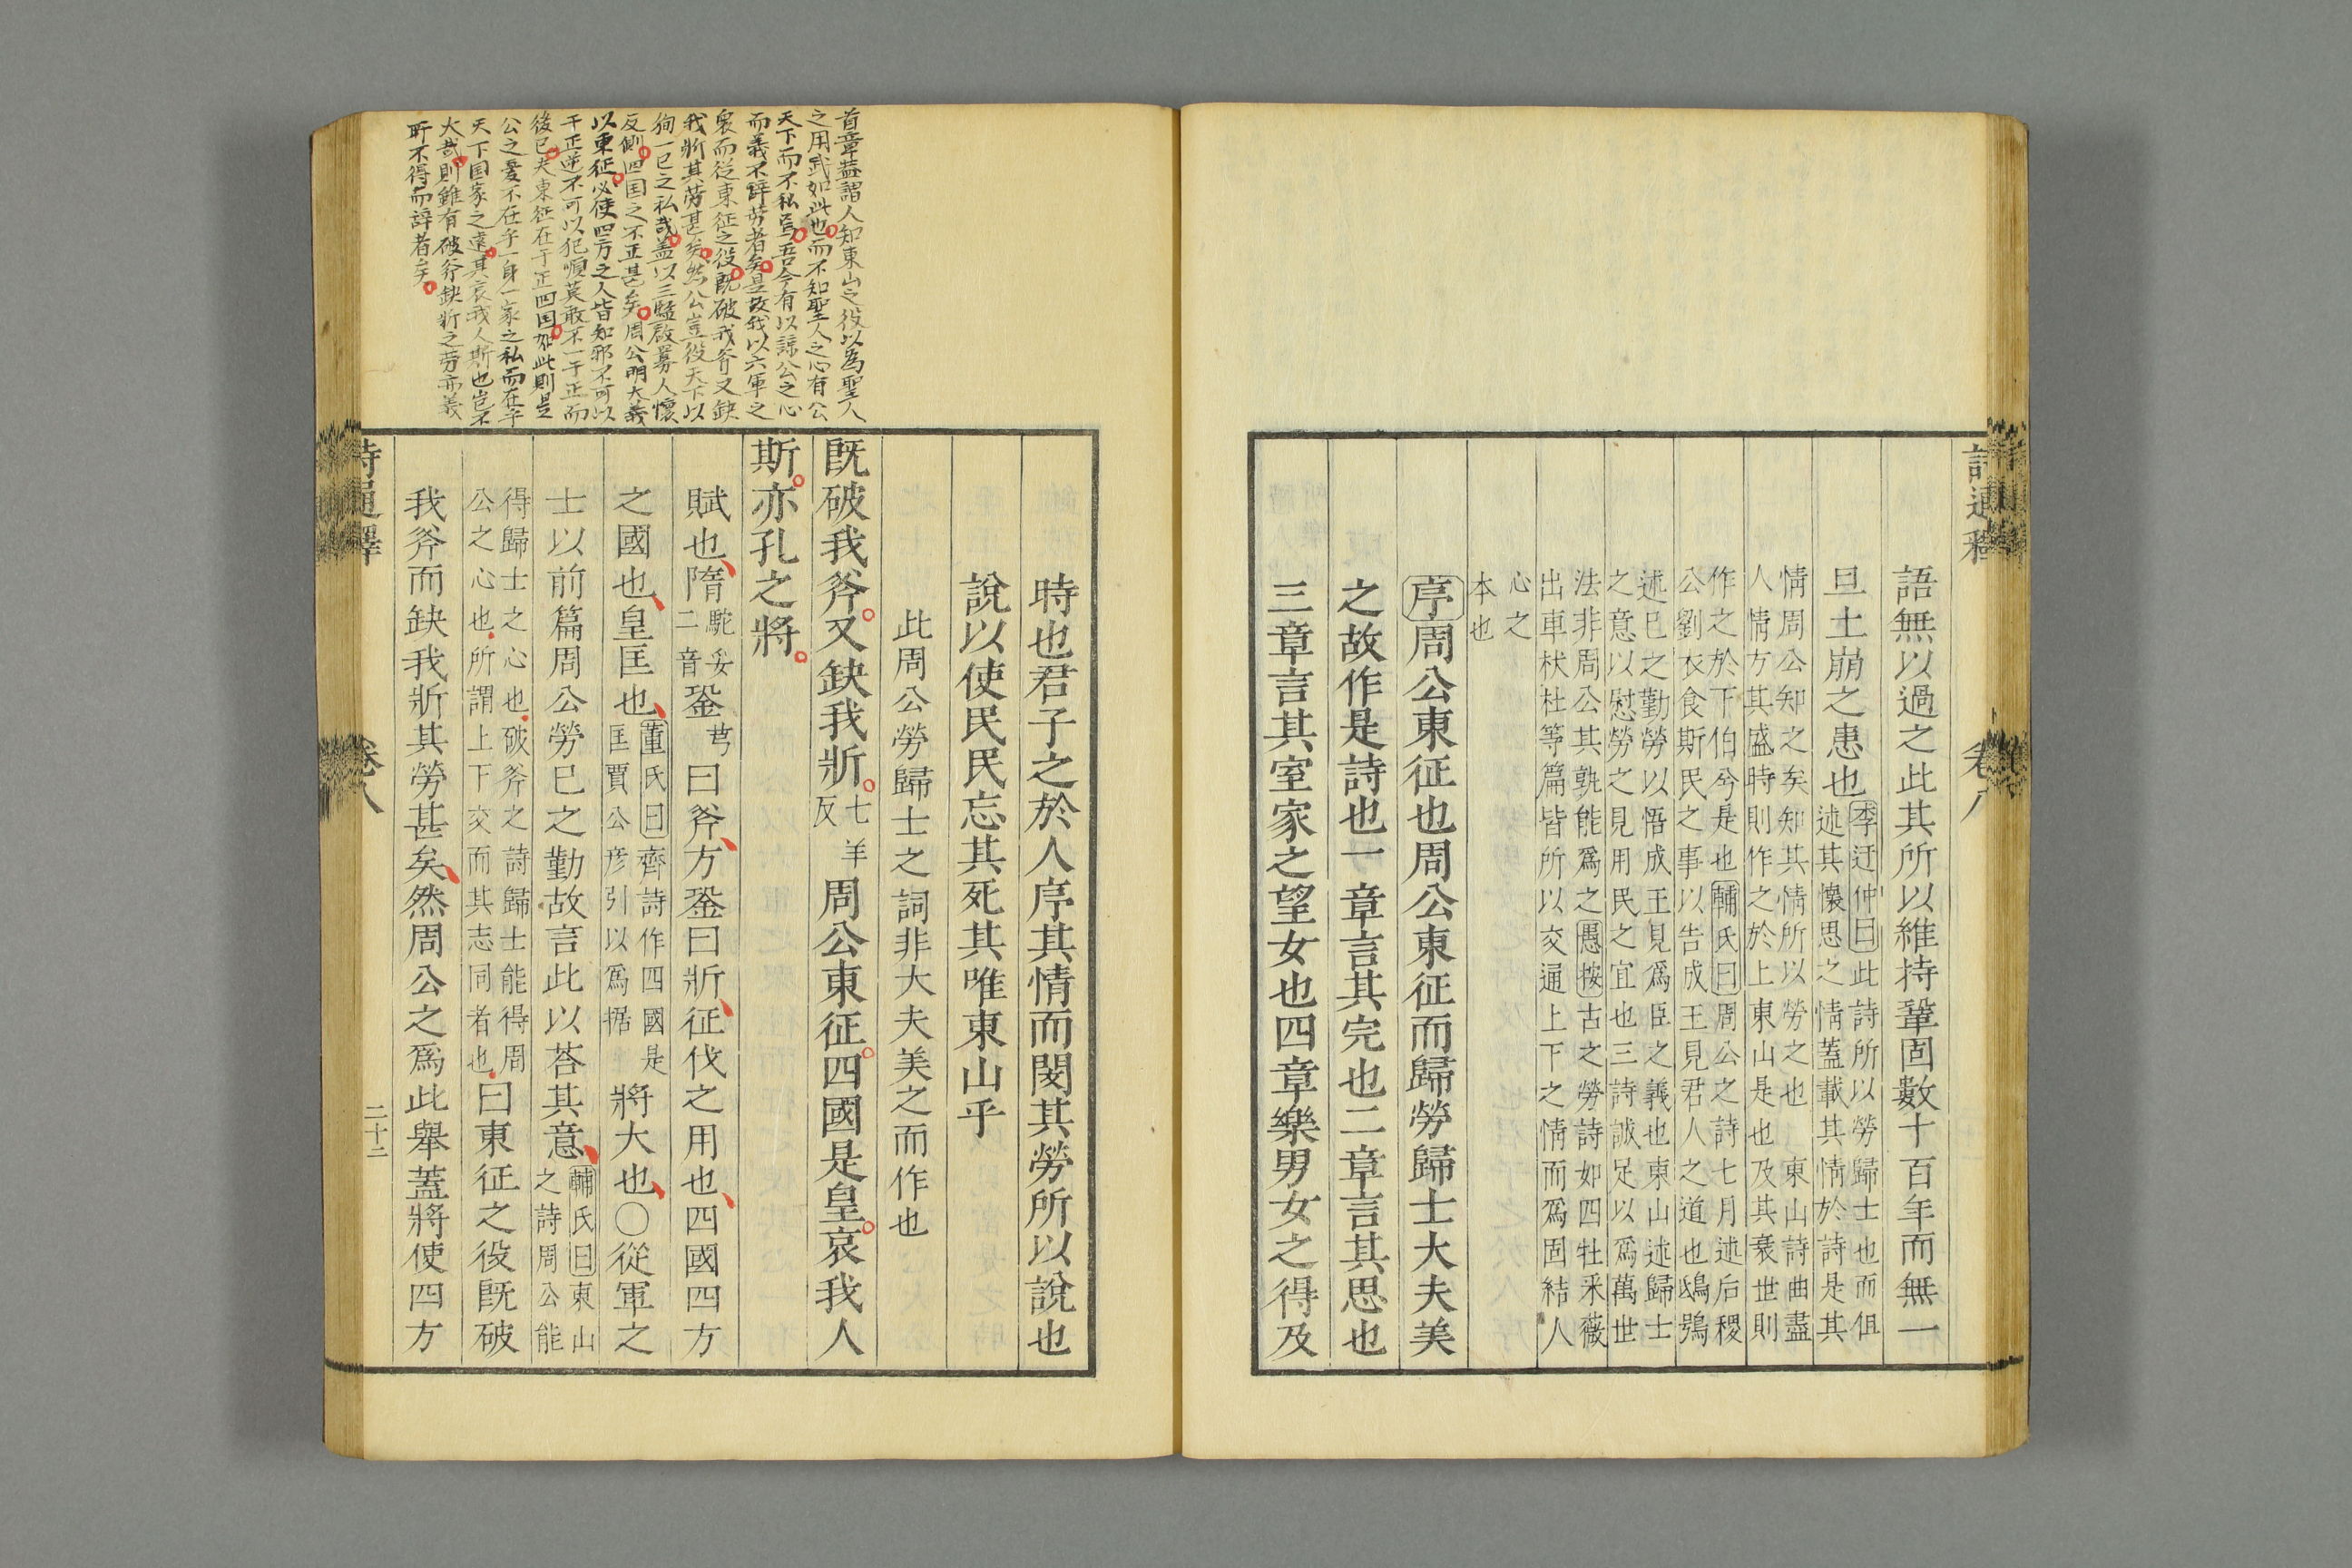 語無以過之此其所以維持鞏固數十百年而無一
旦土崩之患也
李迂仲曰此詩所以勞歸士也而但
述其懷思之情蓋載其情於詩是其
情周公知之矣知其情所以勞之也東山詩曲盡
人情方其盛時則作之於上東山是也及其衰世則
作之於下伯兮是也輔氏曰周公之詩七月述后稷
公劉衣食斯民之事以告成王見君人之道也鴟鴞
述已之勤勞以悟成王見爲臣之義也東山述歸士
之意以慰勞之見用民之宜也三詩誠足以爲萬世
法非周公其孰能爲之愚按古之勞詩如四牡采薇
出車杕杜等篇皆所以交通上下之情而爲固結人
心之
本也
序周公東征也周公東征而歸勞歸士大夫美
之故作是詩也一章言其完也二章言其思也
三章言其室家之望女也四章樂男女之得及
詩通釋
卷八
時也君子之於人序其情而閔其勞所以說也
說以使民民忘其死其唯東山乎
此周公勞歸士之詞非大夫美之而作也
既破我斧又缺我斨七羊反周公東征四國是皇哀我人
斯亦孔之將
賦也隋駝妥二音銎芎曰斧方銎曰斨征伐之用也四國四方
之國也皇匡也董氏曰齊詩作四國是匡賈公彦引以爲据將大也〇從軍之
士以前篇周公勞已之勤故言此以荅其意輔氏曰東山之詩周公能
得歸士之心也破斧之詩歸士能得周
公之心也所謂上下交而其志同者也曰東征之役既破
我斧而缺我斨其勞甚矣然周公之爲此舉蓋將使四方
詩通釋
卷八
二十二
首章蓋謂人知東山之役以為聖人
之用武如此也而不知聖人之心有公
天下而不私焉吾今有以諒公之心
而義不辞劳者矣是故我以六軍之
衆而從東征之役既破我斧又缺
我斨其劳甚矣然公豈役天下以
狥一己之私哉蓋以三監啟釁人懷
反側四国之不正甚矣周公明大義
以東征必使四方之人皆知邪不可以
干正逆不可以犯順莫敢不一于正而
後已夫東征在于正四国如此則是
公之憂不在乎一身一家之私而在乎
天下国家之遠其哀我人斯也豈不
大哉則雖有破斧缺斨之劳亦義
所不得而辞者矣